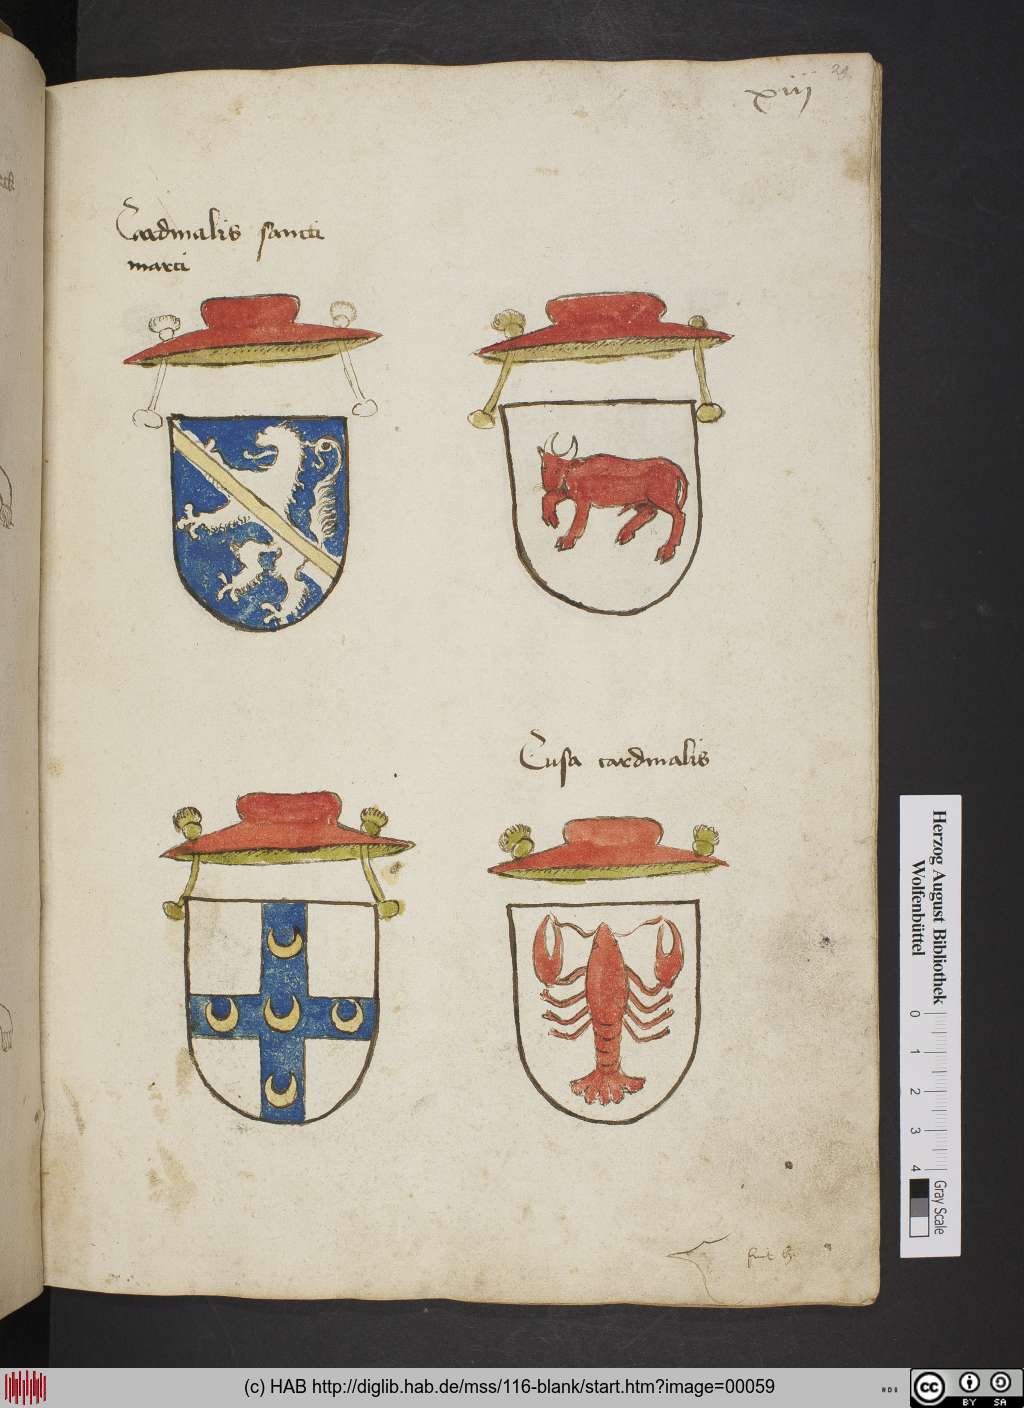 xiii
29.
Cardinalis sancti
marci
Cusa cardinalis
Herzog August Bibliothek
Wolfenbüttel
0 1 2 3 4
Gray Scale
(c) HAB http://diglib.hab.de/mss/116-blank/start.htm?image=00059
cc BY SA